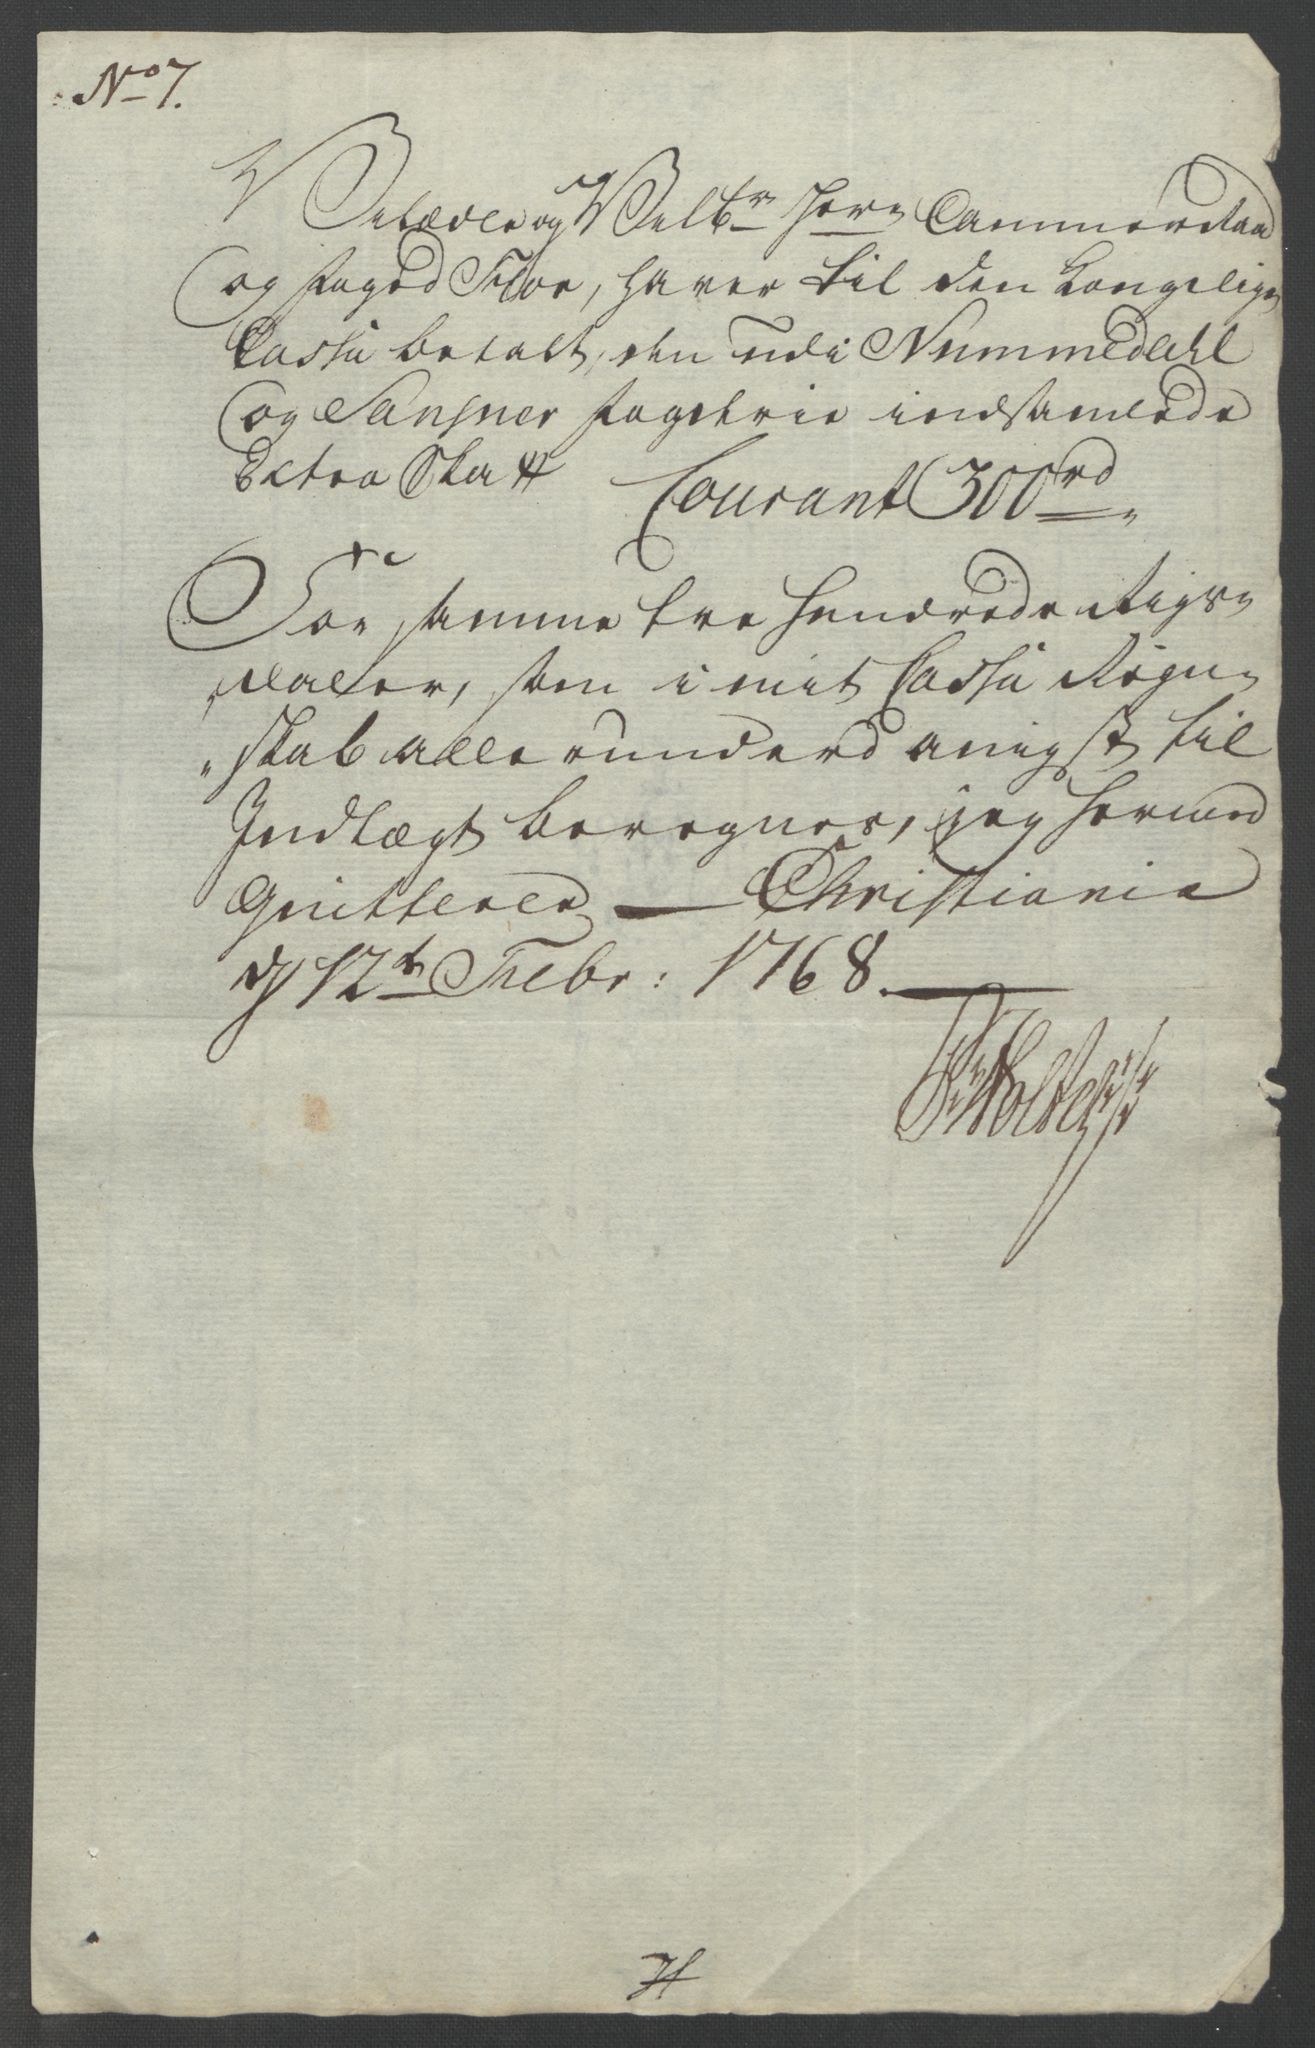 No 7.
Velædle og Velbr Herr Cammerraad
og Foged Flor, haver til den Kongelige
Cassa betalt, den udi Nummedahl
og Sansver Fogderie indsamlede
Extra Skatt Courant 300 rd
For samme tre Hundrede Rigs-
daler, som i mit Cassa Regn-
skab allerunderdanigst til
Indtægt beregnes, jeg herved
qvitterer Christiania
d 12t Febr: 1768.